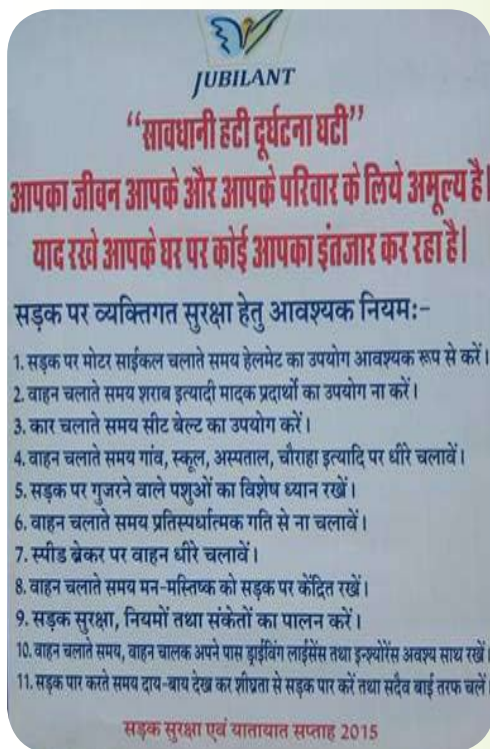 JUBILANT
“सावधानी हटी दूर्घटना घटी”
आपका जीवन आपके और आपके परिवार के लिये अमूल्य है।
याद रखे आपके घर पर कोई आपका इंतजार कर रहा है।
सड़क पर व्यक्तिगत सुरक्षा हेतु आवश्यक नियमः-
1. सड़क पर मोटर साईकल चलाते समय हेलमेट का उपयोग आवश्यक रूप से करें।
2. वाहन चलाते समय शराब इत्यादी मादक प्रदार्थो का उपयोग ना करें।
3. कार चलाते समय सीट बेल्ट का उपयोग करें।
4. वाहन चलाते समय गांव, स्कूल, अस्पताल, चौराहा इत्यादि पर धीरे चलावें।
5. सड़क पर गुजरने वाले पशुओं का विशेष ध्यान रखें।
6. वाहन चलाते समय प्रतिस्पर्धात्मक गति से ना चलावें।
7. स्पीड ब्रेकर पर वाहन धीरे चलावें।
8. वाहन चलाते समय मन-मस्तिष्क को सड़क पर केंद्रित रखें।
9. सड़क सुरक्षा, नियमों तथा संकेतों का पालन करें।
10. वाहन चलाते समय, वाहन चालक अपने पास ड्राईविंग लाईसेंस तथा इन्श्योरेंस अवश्य साथ रखें।
11. सड़क पार करते समय दाय-बाय देख कर शीघ्रता से सड़क पार करें तथा सदैव बाई तरफ चलें
सड़क सुरक्षा एवं यातायात सप्ताह 2015